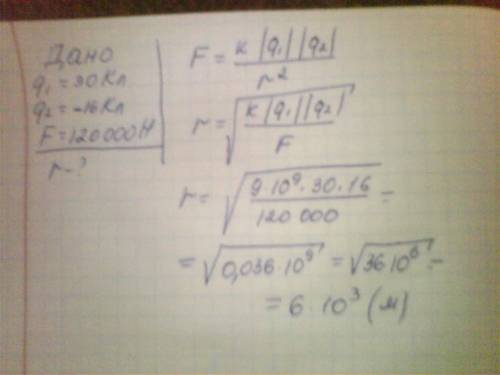 Дано
q₁ = 30 Кл
q₂ = -16 Кл
F = 120 000 Н
r - ?
F = k |q₁| |q₂| / r²
r = √(k |q₁| |q₂| / F)
r = √(9 · 10⁹ · 30 · 16 / 120 000) =
= √(0,036 · 10⁹) = √(36 10⁶) =
= 6 · 10³ (м)